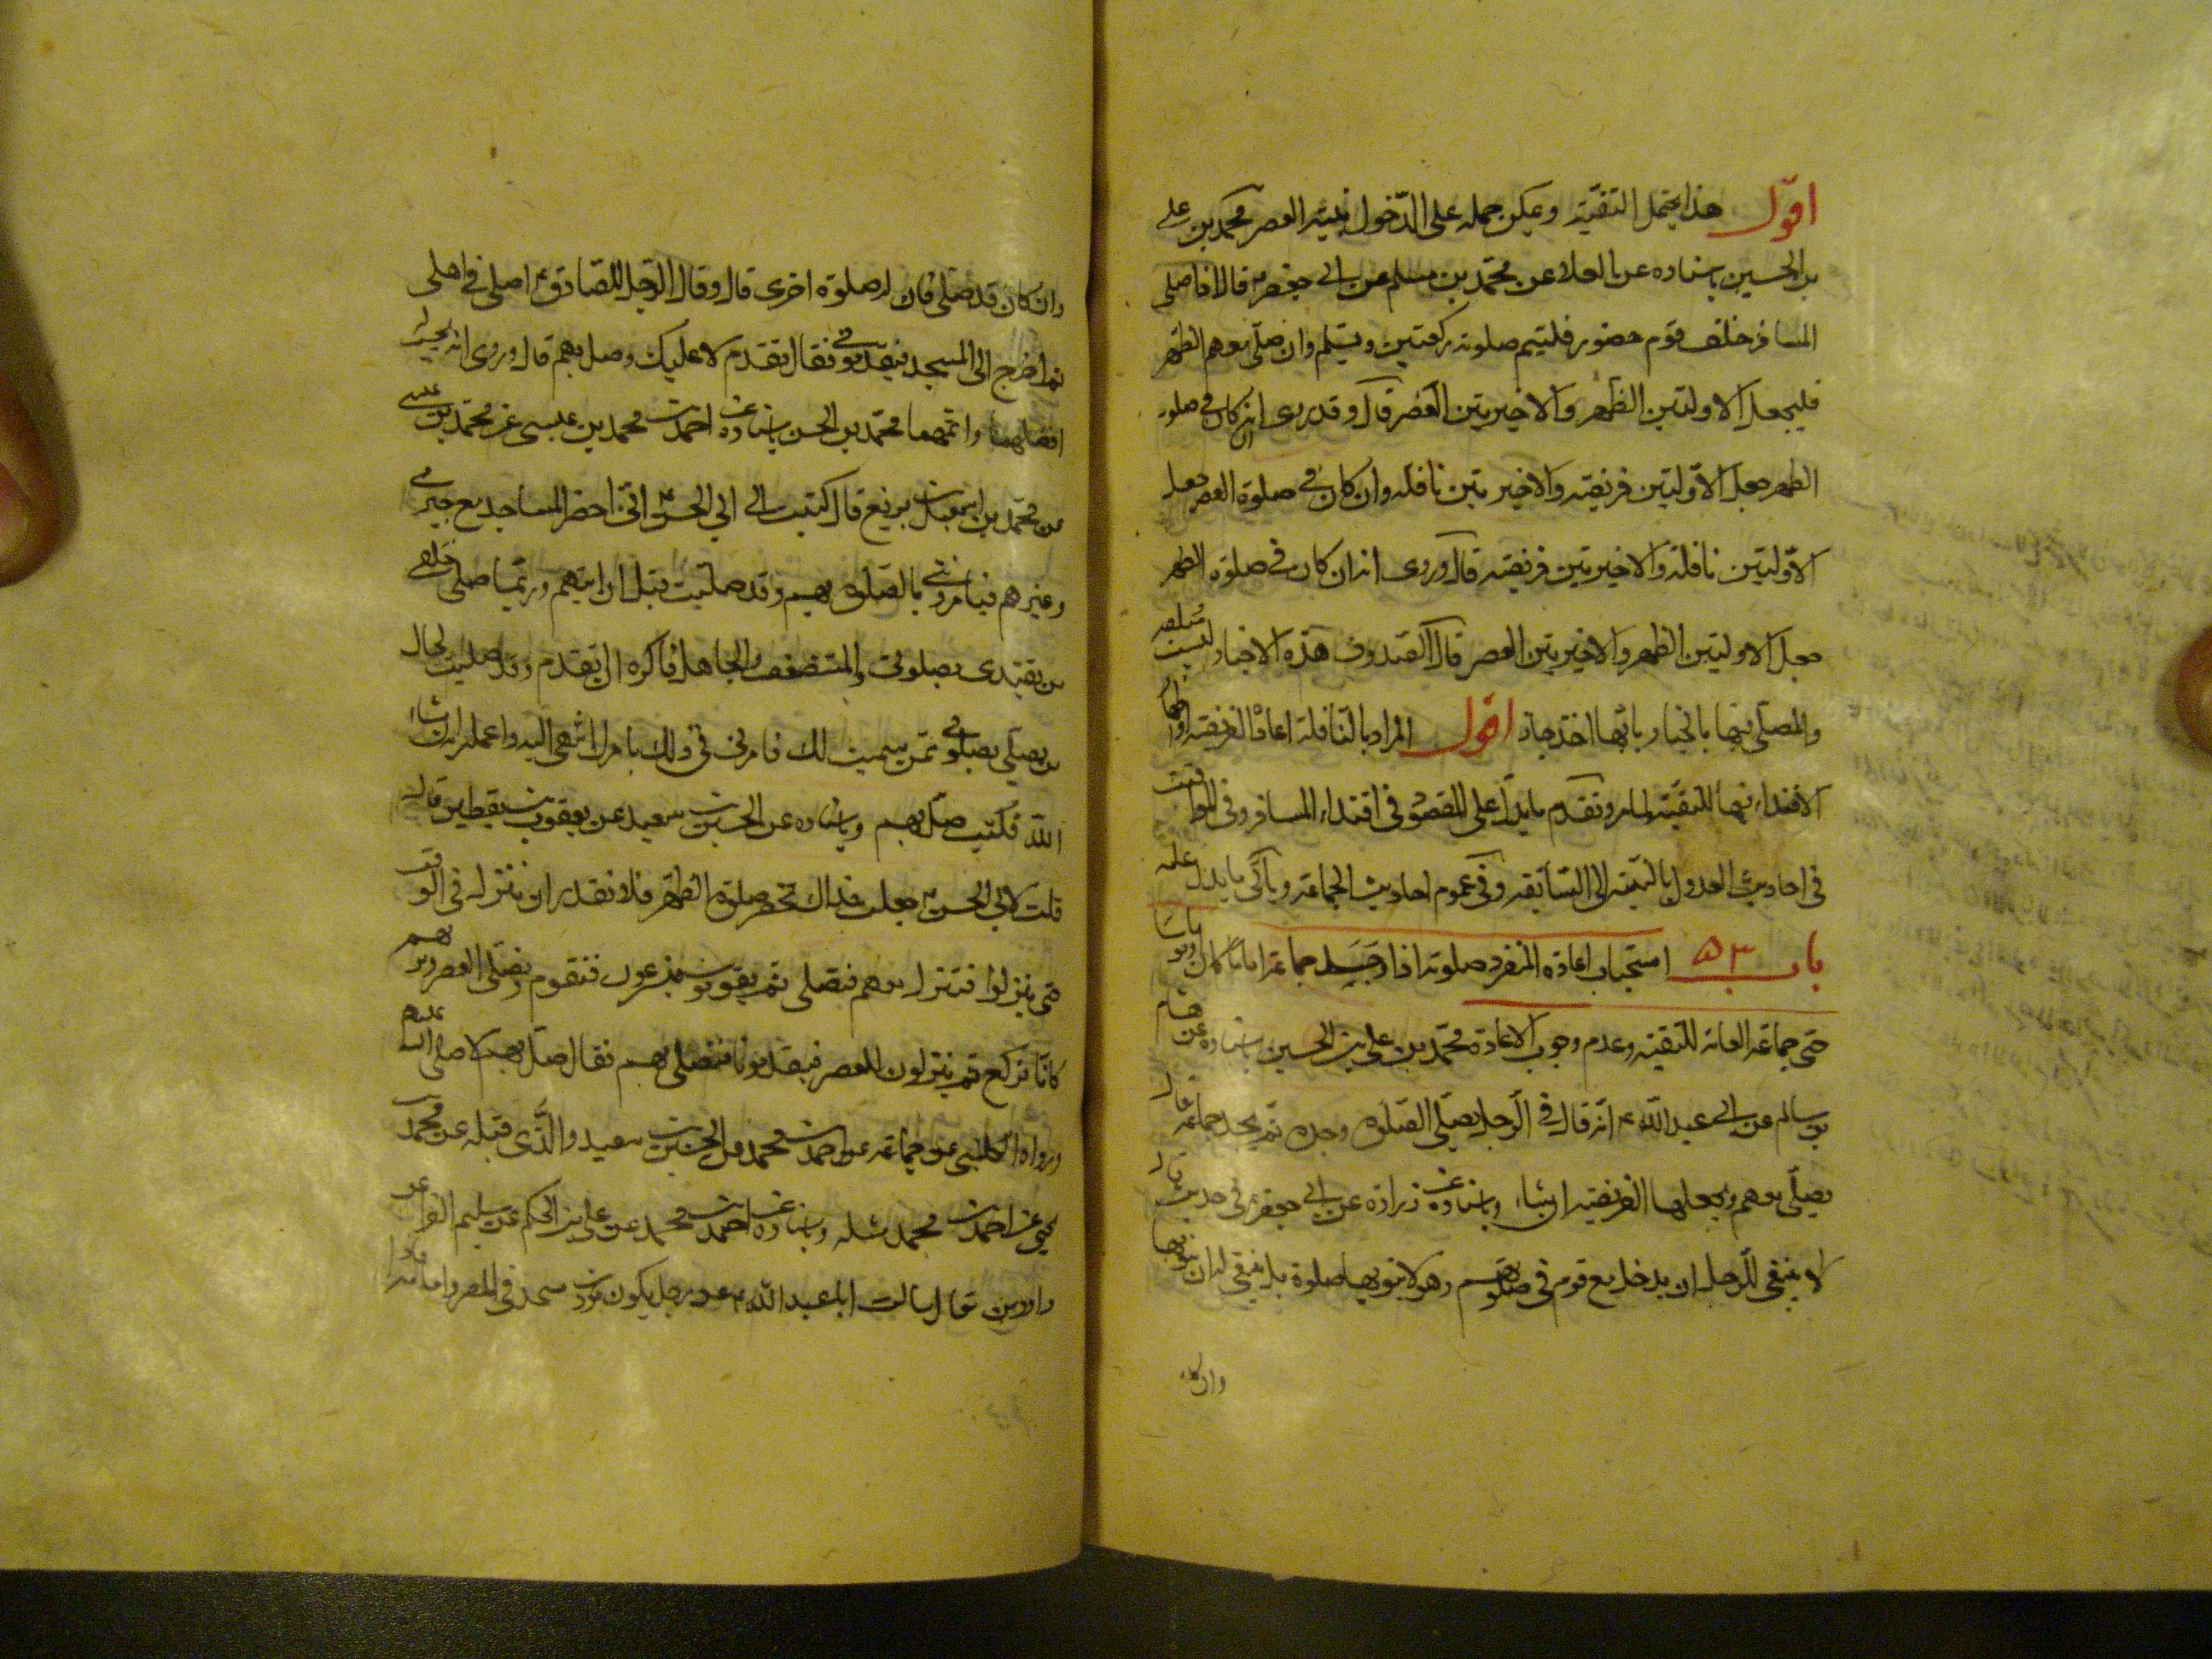 اقول هذا يحتمل التقيّة ويمكن حمله على الدّخول بنيّة العصر محمّد بن على
بن الحسين باسناده عن العلا عن محمّد بن مسلم عن ابى جعفر ع قال اذا صلى
المسافر خلف قوم حضور فليتم صلوته ركعتين ويسلم وان صلّى معهم الظهر
فليجعل الاولتين الظهر والاخيريتين العصر قال وقد روى انه ان كان فى صلوة
الظهر جعل الاوّلتين فريضة والاخيريتين نافلة وان كان فى صلوة العصر جعل
الاوّلتين نافلة والاخيريتين فريضة قال وروى انه ان كان فى صلوة الظهر
جعل الاولتين الظهر والاخيريتين العصر قال الصّدوق هذه الاخبار ليست مختلفة
والمصلّى فيها بالخيار بايّها اخذ جاز اقول المراد بالنافلة اعادة الفريضة
الاقتداء فيها للتقيّة لما مر وتقدم ما يدل على المقصود فى اقتداء المسافر وفى المواقيت
فى احاديث العدول بالنيّة الى السّابقة وفى عموم احاديث الجماعة وياتى ما يدل عليه
باب ٥٣ استحباب اعادة المنفرد صلوته اذا وجد جماعة اماما كان او ماموما
حتى جماعة العامة للتقية وعدم وجوب الاعادة محمّد بن على بن الحسين باسناده عن هشام
بن سالم عن ابى عبد اللّه ع انّه قال فى الرّجل يصلّى الصّلوة وحده ثم يجد جماعة قال
يصلّى معهم ويجعلها الفريضة ان شاء وباسناده عن زرارة عن ابى جعفر ع فى حديث قال
لا ينبغى للرّجل ان يدخل مع قوم فى صلوتهم وهو لا ينويها صلوة بل ينبغى له ان ينويها
وان كان
وان كان قد صلى فان له صلوة اخرى قال وقال الرّجل للصّادق ع اصلى فى اهلى
ثم اخرج الى المسجد فيقدّمونى فقال تقدم لا عليك وصل بهم قال وروى انه يحسب له
افضلهما واتمهما محمّد بن الحسن باسناده عن احمد بن محمد بن عيسى عن محمّد بن عيسى
عن محمّد بن اسمعيل بن بزيع قال كتبت الى ابى الحسن ع انّى احضر المساجد مع جيرتى
وغيرهم فيامرونى بالصّلوة بهم وقد صليت قبل ان اتيهم وربّما صلى خلفى
من يقتدى بصلوتى والمستضعف والجاهل فاكره ان اتقدم وقد صليت لحال
من يصلّى بصلوتى ممّن سميت لك فامرنى فى ذلك بامرك انتهى اليه واعمل به ان شاء
اللّه فكتب صلّ بهم وباسناده عن الحسين بن سعيد عن يعقوب بن يقطين قال
قلت لابى الحسن ع جعلت فداك تحضر صلوة الظهر فلا نقدر ان ننزل فى الوقت
حتى ينزلوا فننزل معهم فنصلى ثم يقومون فيسرعون فنقوم ونصلّى العصر ونريهم
كانّا نركع ثم ينزلون للعصر فيقدمونا فنصلى بهم فقال صلّ بهم لا صلى الله عليهم
ورواه الكلينى عن جماعة عن احمد بن محمد عن الحسين بن سعيد والّذى قبله عن محمد بن
يحيى عن احمد بن محمد مثله وباسناده عن احمد بن محمد عن على بن الحكم عن سليم الفراء عن
داود قال سالت ابا عبد اللّه ع عن رجل يكون مؤذن مسجد فى المصر وامامه فاذا